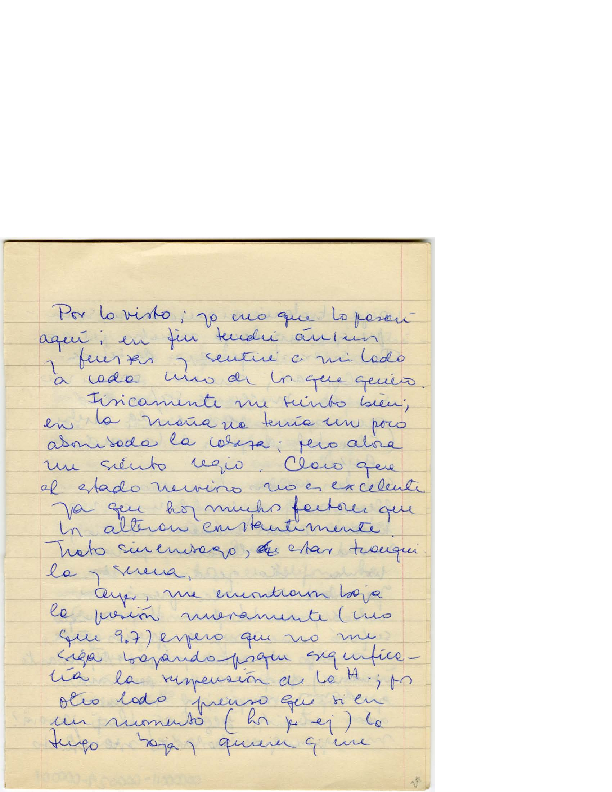 Por lo visto; yo creo que lo pasaré
aquí; en fin tendré ánimos
y fuerzas y sentiré a mi lado
a cada uno de los que quiero.
Físicamente me siento bien;
en la mañana tenía un poco
abombada la cabeza; pero ahora
me siento regio. Claro que
el estado nervioso no es excelente
ya que hay muchos factores que
los alteran constantemente
Trato sin embargo, de estar tranqui
la y serena.
Ayer, me encontraron baja
la presión nuevamente (creo
que 9.7) espero que no me
siga bajando porque significa-
ría la suspensión de la H.; por
otro lado pienso que si en
un momento (hoy p. ej) la
tengo baja y quieren que